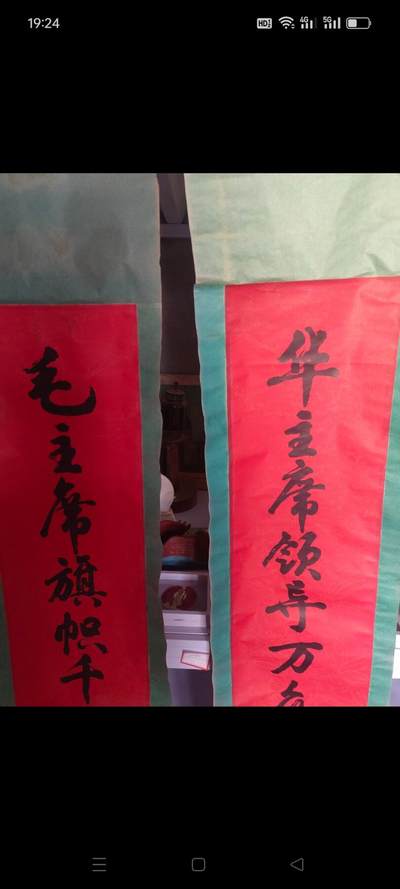 19:24
HD 4G 5G
毛主席旗帜千
华主席领导万